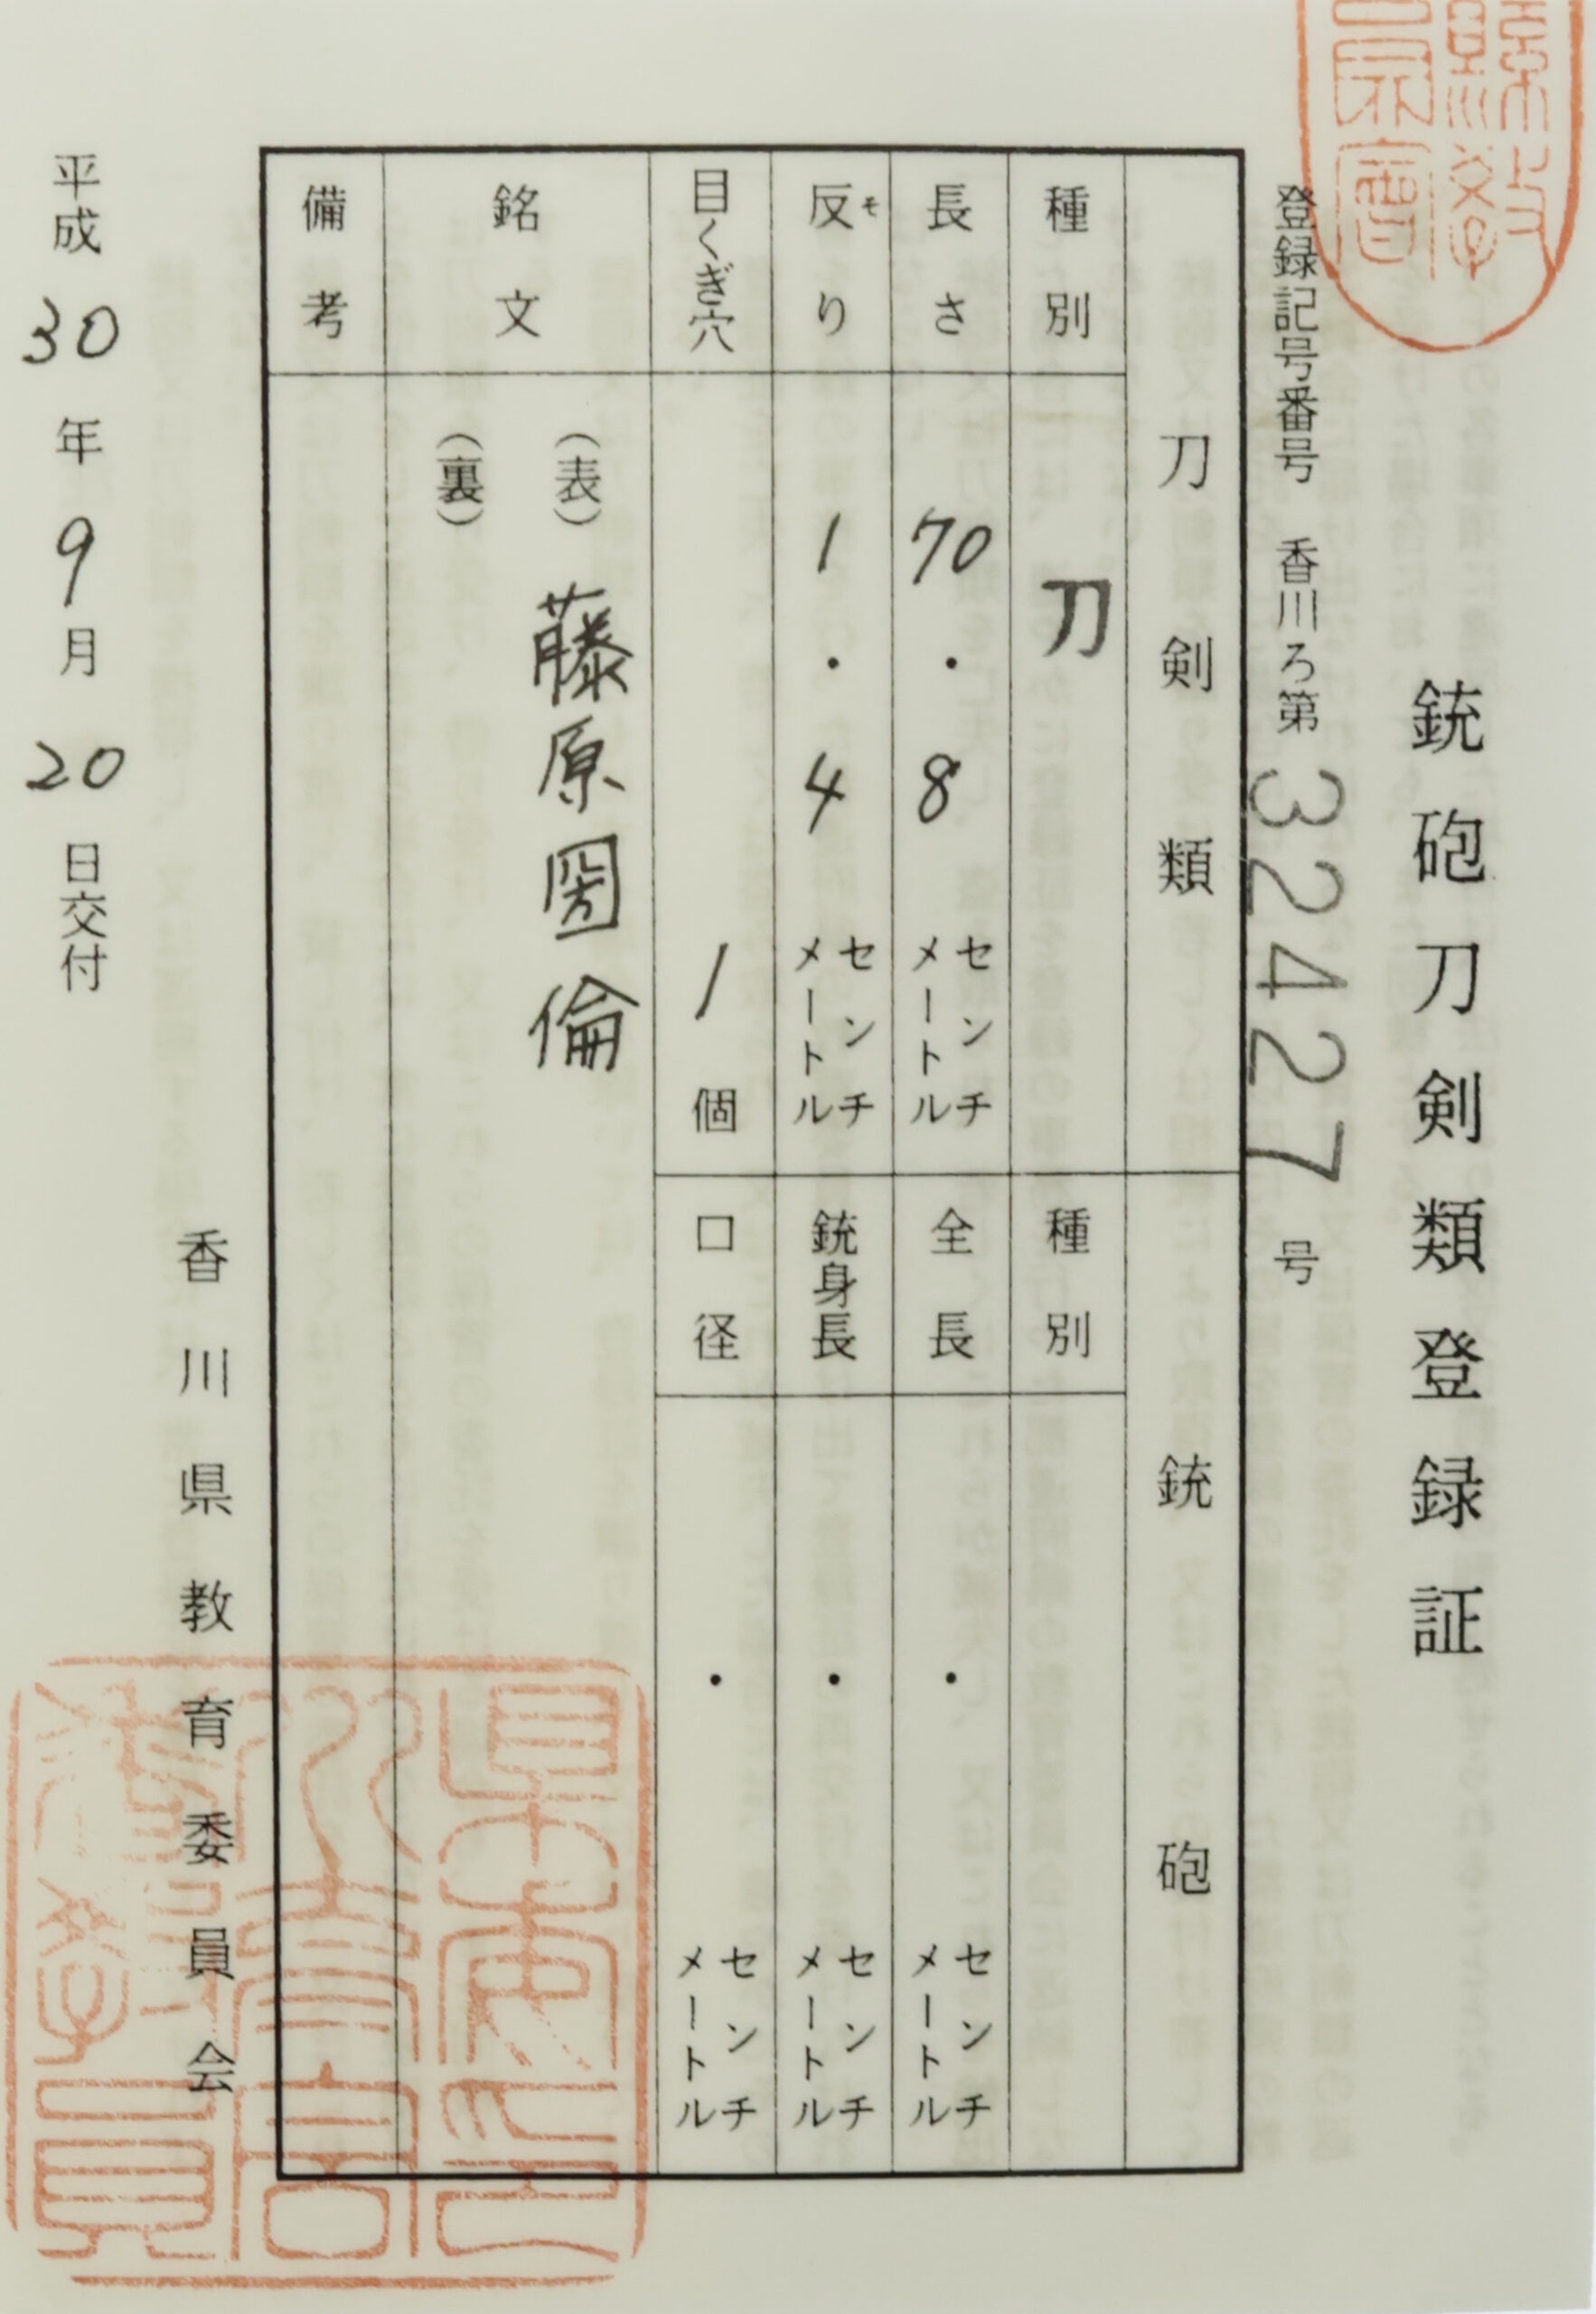 銃砲刀剣類登録証
登録記号番号 香川ろ第 32427 号
刀剣類
種別 刀
長さ 70.8 センチメートル
反り 1.4 センチメートル
そ
目くぎ穴 1個
銃砲
種別
全長 ・ センチメートル
銃身長 ・ センチメートル
口径 ・ センチメートル
銘文 (表) 藤原圀倫
(裏)
備考
香川県教育委員会
平成30年9月20日交付